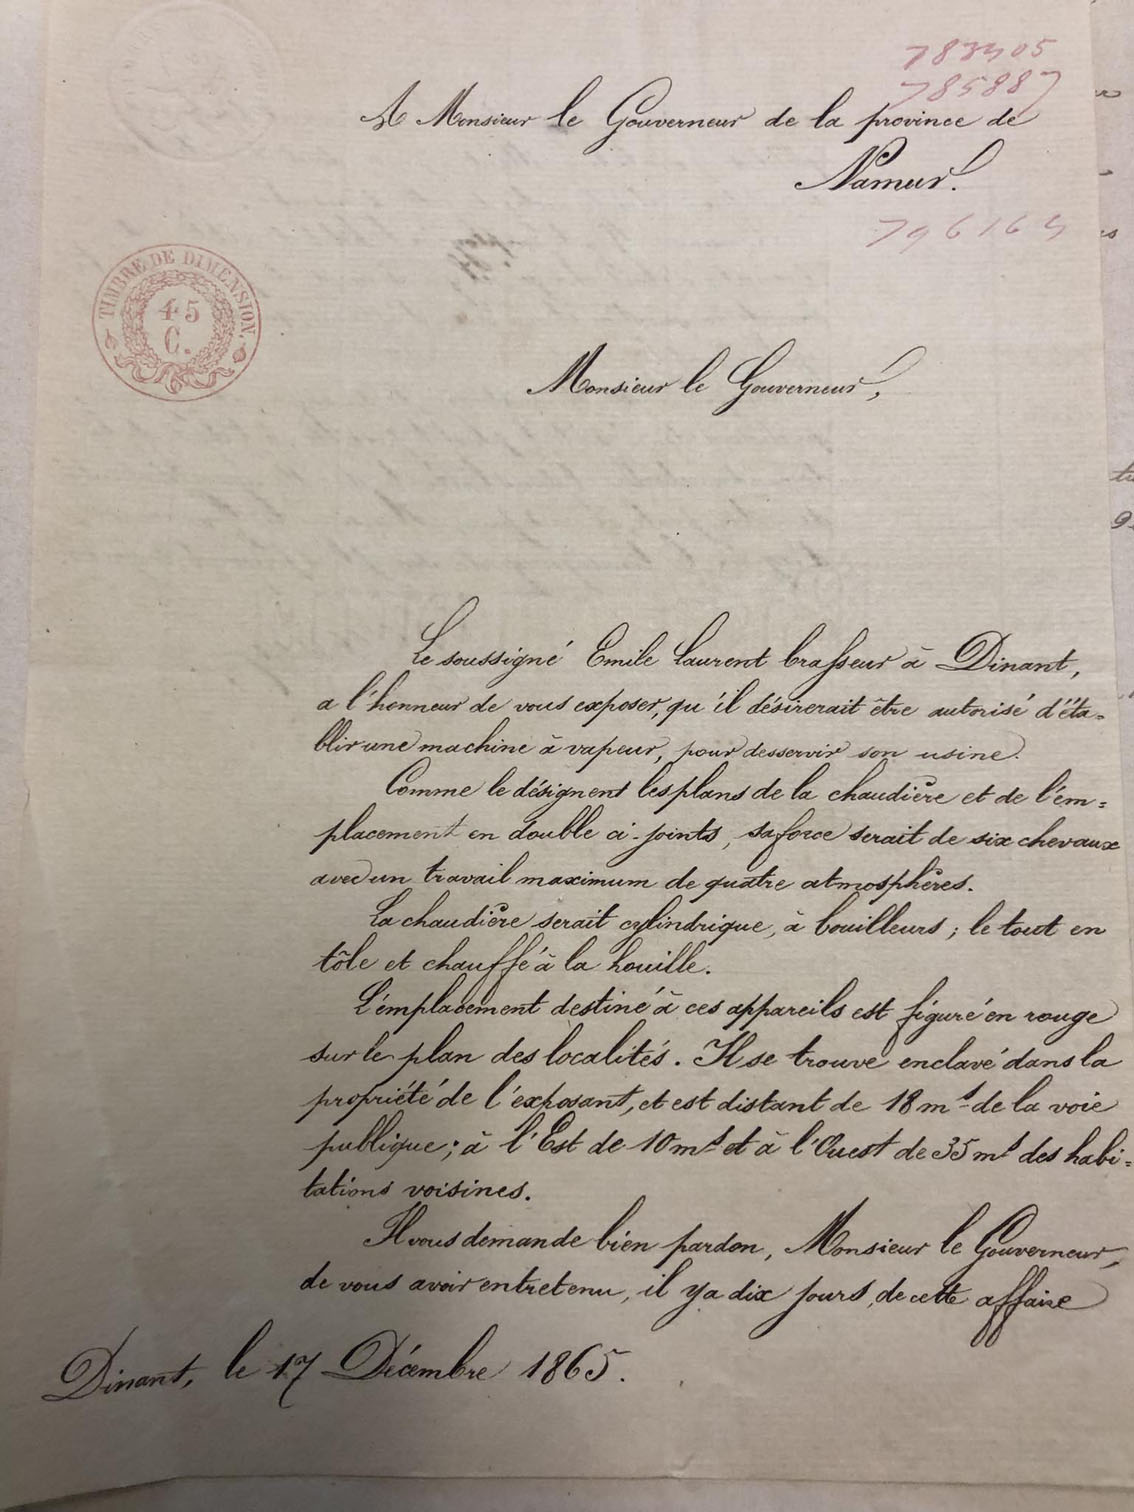 783405
785887
A Monsieur le Gouverneur de la province de
Namur.
796164
TIMBRE DE DIMENSION.
45
C.
Monsieur le Gouverneur,
Le soussigné Emile Laurent brasseur à Dinant,
a l'honneur de vous exposer, qu'il désirerait être autorisé d'éta=
blir une machine à vapeur, pour desservir son usine.
Comme le désignent les plans de la chaudière et de l'em=
placement en double ci-joints, sa force serait de six chevaux
avec un travail maximum de quatre atmosphères.
La chaudière serait cylindrique, à bouilleurs; le tout en
tôle et chauffé à la houille.
L'emplacement destiné à ces appareils est figuré en rouge
sur le plan des localités. Il se trouve enclavé dans la
propriété de l'exposant, et est distant de 18 ms de la voie
publique; à l'Est de 10 ms et à l'Ouest de 35 ms des habi=
tations voisines.
Il vous demande bien pardon, Monsieur le Gouverneur,
de vous avoir entretenu, il y a dix jours, de cette affaire
Dinant, le 17 Décembre 1865.